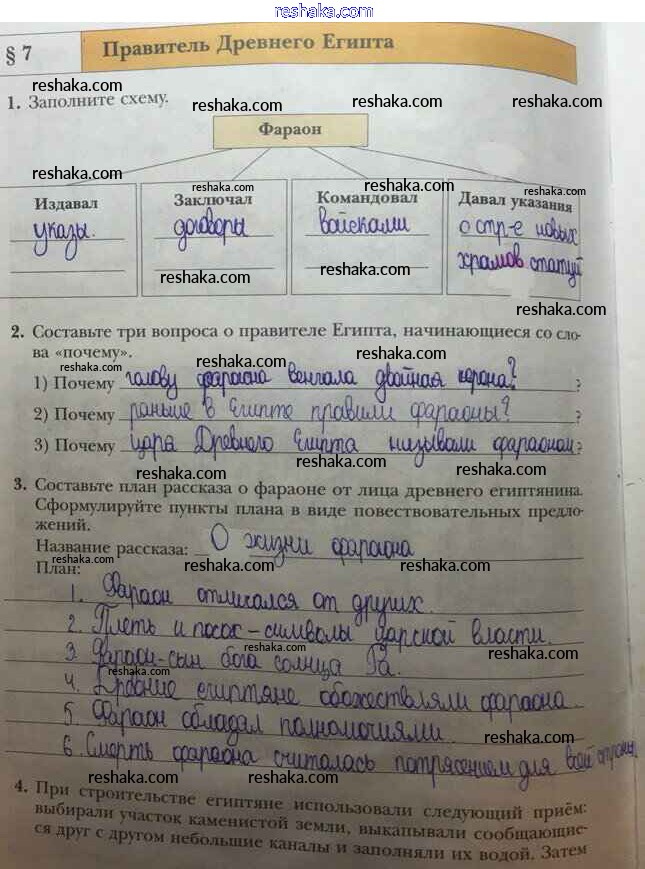 reshaka.com
§ 7 Правитель Древнего Египта
reshaka.com
reshaka.com reshaka.com reshaka.com
1. Заполните схему.
Фараон
reshaka.com
reshaka.com reshaka.com reshaka.com
Издавал Заключал Командовал Давал указания
указы. договоры войсками о стр-е новых
храмов статуй
reshaka.com reshaka.com
2. Составьте три вопроса о правителе Египта, начинающиеся со сло-
ва «почему».
reshaka.com reshaka.com
1) Почему голову фараона венчала двойная корона? ?
reshaka.com reshaka.com
2) Почему раньше в Египте правили фараоны? ?
reshaka.com
3) Почему царя Древнего Египта называли фараоном ?
reshaka.com
3. Составьте план рассказа о фараоне от лица древнего египтянина.
Сформулируйте пункты плана в виде повествовательных предло-
жений.
reshaka.com
Название рассказа: О жизни фараона
reshaka.com reshaka.com
План:
1. Фараон отличался от других.
reshaka.com
2. Плеть и посох - символы царской власти.
reshaka.com reshaka.com
3. Фараон-сын бога солнца Ра.
reshaka.com
4. Древние египтяне обожествляли фараона.
5. Фараон обладал полномочиями.
reshaka.com reshaka.com
6. Смерть фараона считалась потрясением для всей страны.
reshaka.com reshaka.com
4. При строительстве египтяне использовали следующий приём:
выбирали участок каменистой земли, выкапывали сообщающие-
ся друг с другом небольшие каналы и заполняли их водой. Затем
reshaka.com